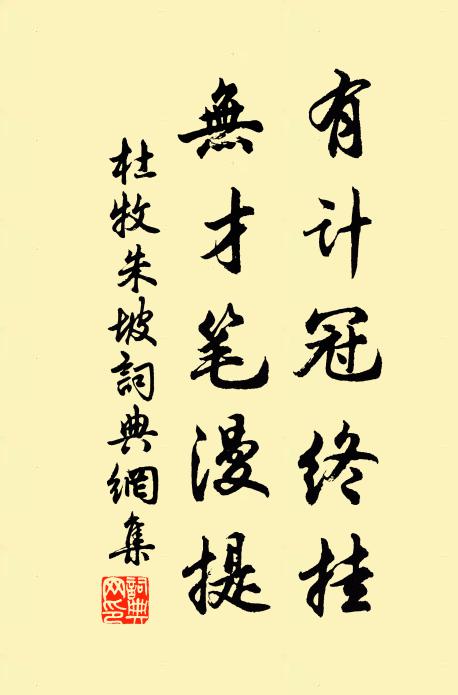 有计冠终挂
無才笔漫提
杜牧朱坡詞典網集
詞典網印